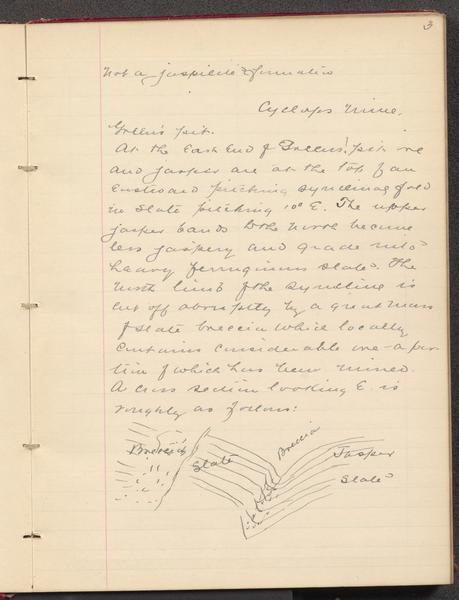 3
Not a jaspilite formation
Cyclops Mine.
Green's pit.
At the East End of Greens' pit ore
and jasper are at the top of an
Eastward pitching synclinal fold
in slate pitching 10° E. The upper
jasper bands to the North become
less jaspery and grade into
heavy ferruginous slates. The
North limb of the syncline is
cut off abruptly by a great mass
of slate breccia which locally
contains considerable ore - a por-
tion of which has been mined.
A cross section looking E. is
roughly as follows:
Breccia
Jasper
Breccia
Slate
Slate